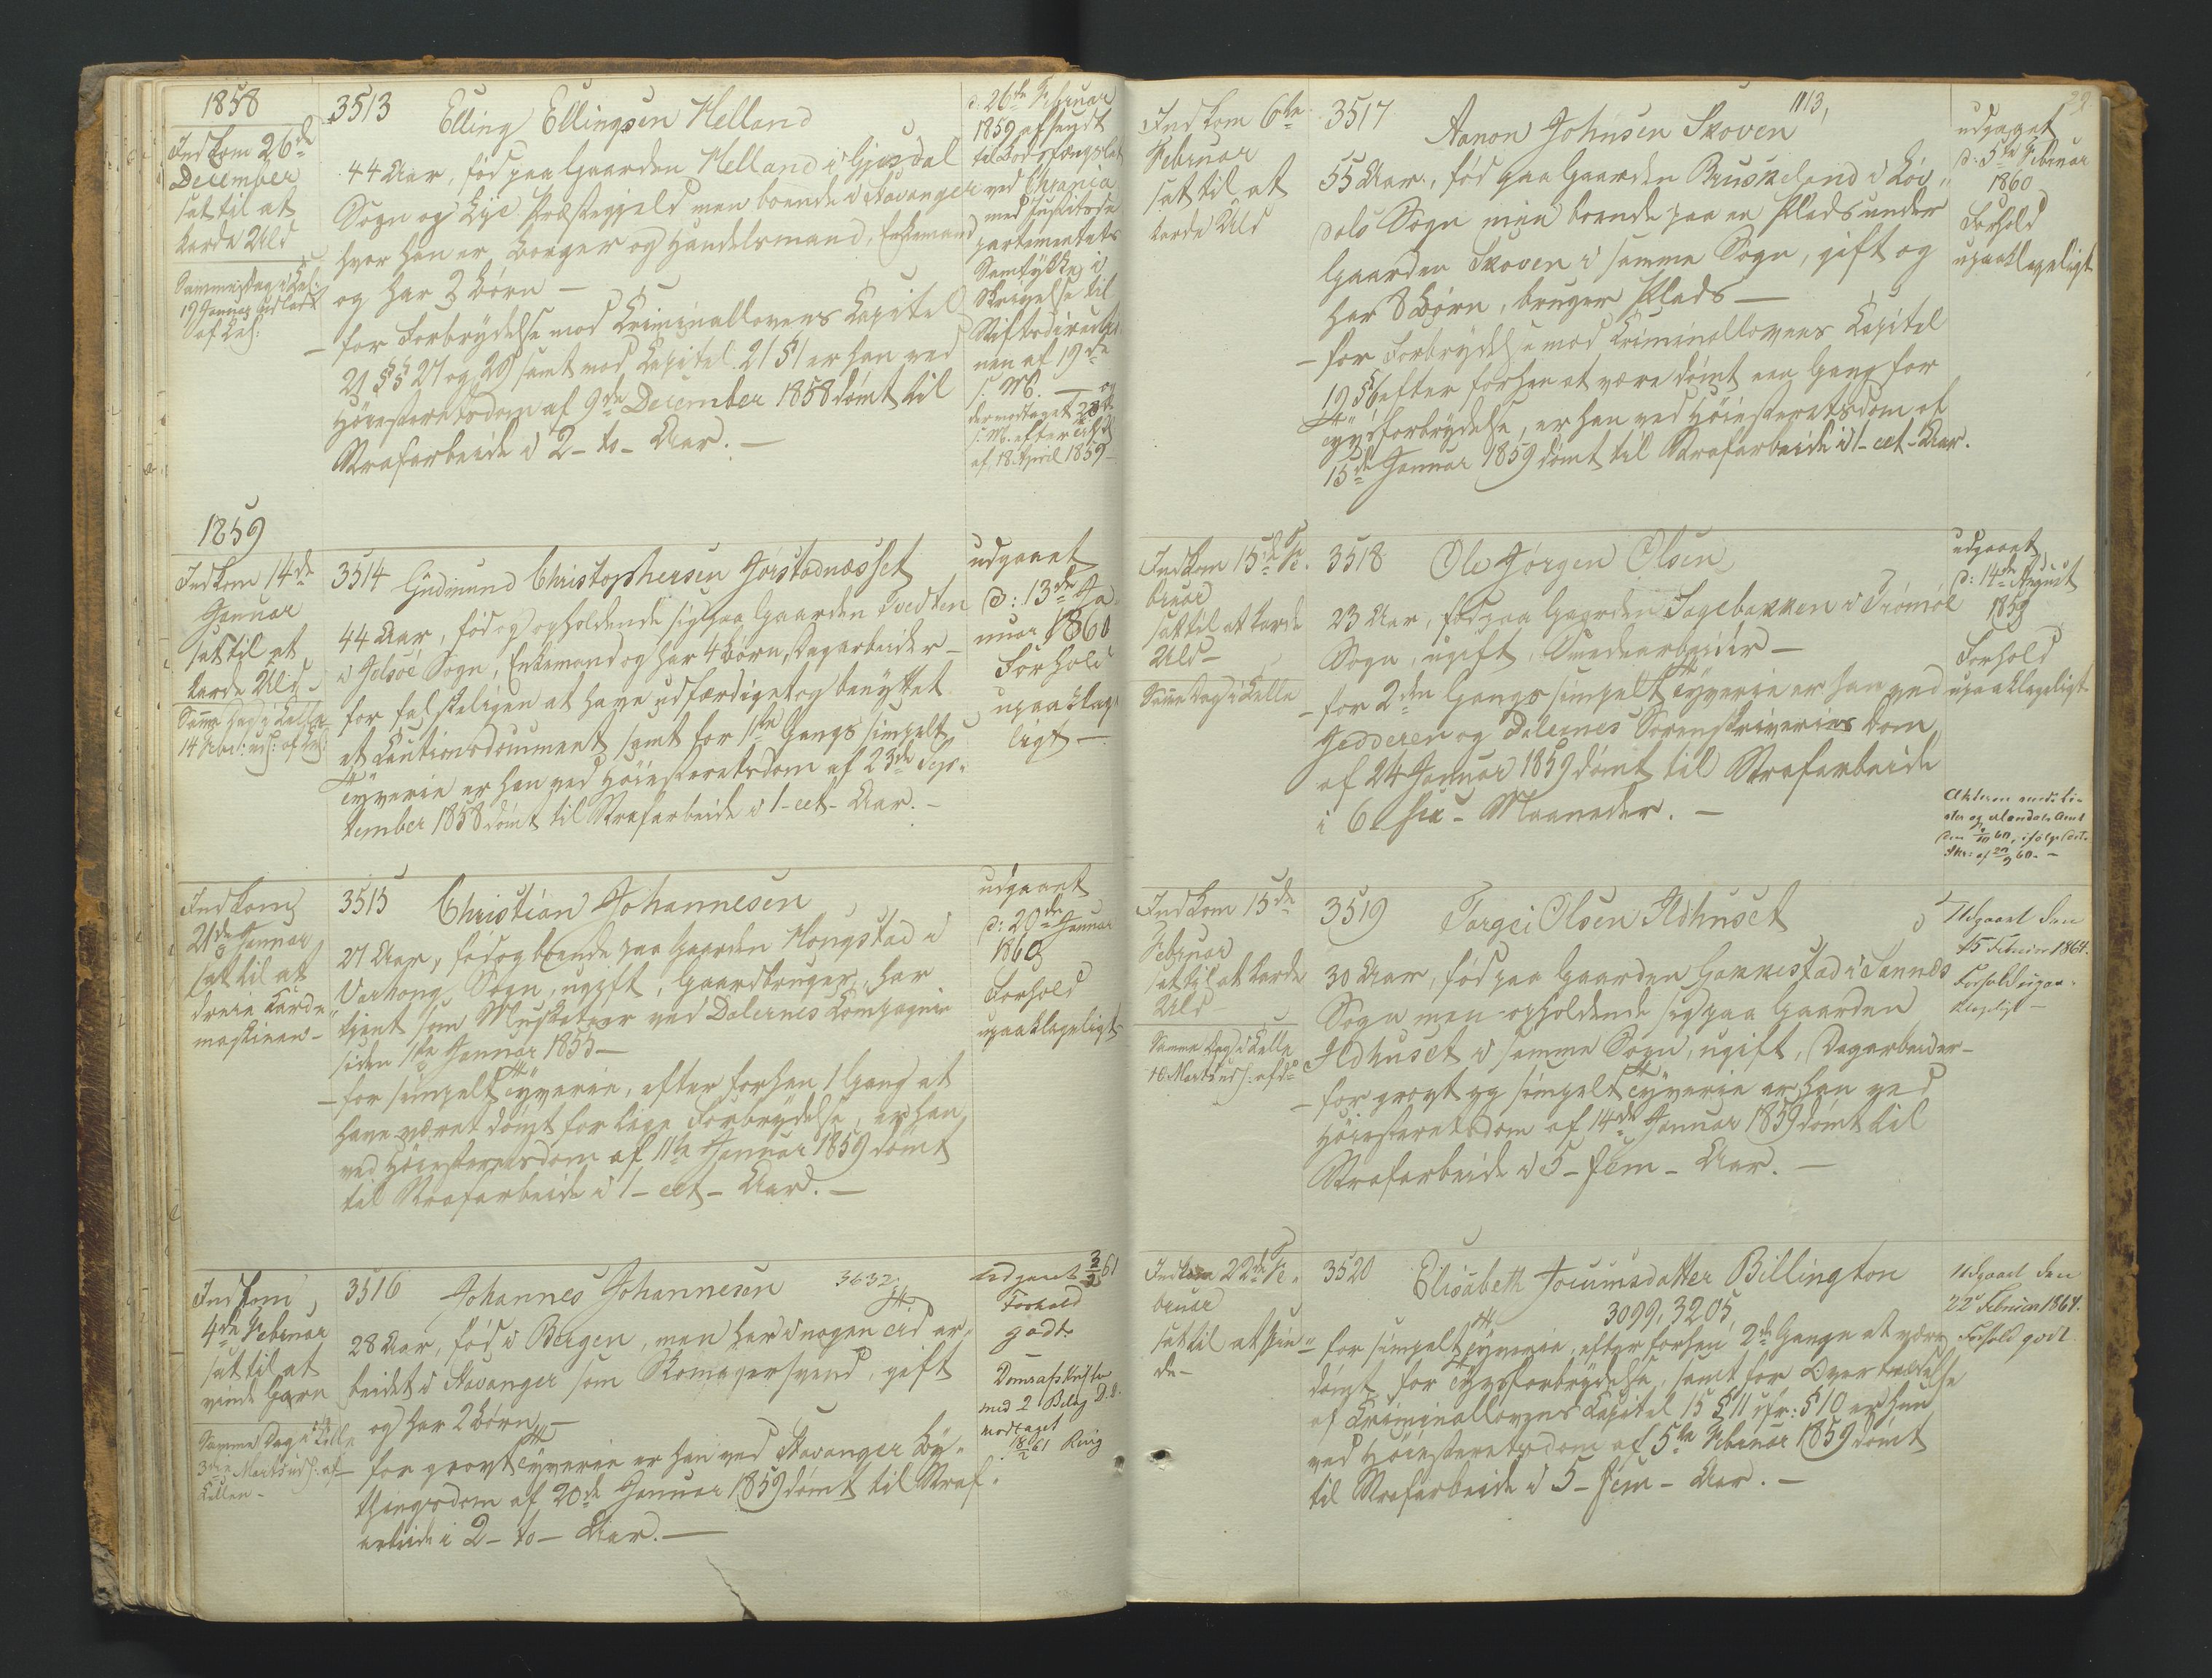 1858
Indkom 26de
December
sat til at
karde Uld
Samme Dag i Cel:
19 Januar udladt
af Cel:
3513 Elling Ellingsen Helland
44 Aar, fød paa Gaarden Helland i Gjesdal
Sogn og Lye Præstegjeld men boende i Stavanger
hvor han er Borger og Handelsmand, Enkemand
og har 3 Børn —
— for Forbrydelse mod Criminallovens Capitel
21 §§ 27 og 29 samt mod Capitel 21 § 1 er han ved
Høiesteretsdom af 9de December 1858 dømt til
Strafarbeide i 2 - to - Aar. —
d: 26de Februar
1859 afsendt
til Bodsfængslet
ved Chrania
med Justitsde
partementets
Samtykke i
Skrivelse til
Stiftsdirectio
nen af 19de
s. M. — og
der modtaget 28de
s. M. efter
af 18 April 1859 —
1859
Indkom 14de
Januar
sat til at
karde Uld
Samme Dag i Celle
14 Febr: uds: af Cel:
3514 Gudmund Christophersen Jørstadnæsset
44 Aar, fød og opholdende sig paa Gaarden Tvedten
i Jelsøe Sogn, Enkemand og har 4 Børn, Dagarbeider —
for falskeligen at have udfærdiget og benyttet
et Cautionsdocument samt for 1ste Gangs simpelt
Tyverie er han ved Høiesteretsdom af 23de Sep-
tember 1858 dømt til Strafarbeide i 1 - eet - Aar. —
udgaaet
d: 13de Ja
nuar 1860
Forhold
upaaklage
ligt —
Indkom
21de Januar
sat til at
dreie Karde
maskinen —
3515 Christian Johannesen
27 Aar, fød og boende paa Gaarden Hougstad i
Varhoug Sogn, ugift, Gaardbruger, har
tjent som Musketeer ved Dalernes Compagnie
siden 1ste Januar 1855 —
— for simpelt Tyverie, efter forhen 1 Gang at
have været dømt for lige Forbrydelse, er han
ved Høiesteretsdom af 11te Januar 1859 dømt
til Strafarbeide i 1 - eet - Aar. —
udgaaet
d: 20de Januar
1860
Forhold
upaaklageligt
Indkom
4de Februar
sat til at
vinde Garn
Samme Dag i Celle
3die Marts uds: af
Cellen —
3516 Johannes Johannesen 3632
28 Aar, fød i Bergen, men har i nogen Tid ar-
beidet i Stavanger som Skomagersvend, gift
og har 2 Børn —
— for grovt Tyverie er han ved Stavanger By-
thingsdom af 20de Januar 1859 dømt til Straf-
arbeide i 2 - to - Aar. —
Udgaaet 3/2 61
Forhold
godt
Domsafskrift
med 2 Bilag D.d.
modtaget
18/2 61 Ring
22
Indkom 6te
Februar
sat til at
karde Uld
3517 Aanon Johnsen Skoven 1113,
55 Aar, fød paa Gaarden Bruskeland i Løv-
dals Sogn men boende paa en Plads under
Gaarden Skoven i samme Sogn, gift og
har 8 Børn, bruger Plads —
— for Forbrydelse mod Criminallovens Capitel
19 § 6 efter forhen at være dømt een Gang for
Tyvsforbrydelse, er han ved Høiesteretsdom af
15de Januar 1859 dømt til Strafarbeide i 1 - eet - Aar.
udgaaet
d: 5te Februar
1860
Forhold
upaaklageligt
Indkom 15de Fe-
bruar
sat til at karde
Uld —
Samme Dag i Celle
3518 Ole Jørgen Olsen
23 Aar, fød paa Gaarden Sagebakken i Tromøe
Sogn, ugift, Smedearbeider —
— for 2den Gangs simpelt Tyverie er han ved
Jedderen og Dalernes Sorenskriveries Dom
af 24 Januar 1859 dømt til Strafarbeide
i 6 - sex - Maaneder. —
udgaaet
d: 14de August
1859
Forhold
upaaklageligt
Indkom 15de
Februar
sat til at karde
Uld —
Samme Dag i Celle
10 Marts uds: af do
3519 Torgei Olsen Ildhuset
30 Aar, fød paa Gaarden Gakkestad i Sannes
Sogn men opholdende sig paa Gaarden
Ildhuset i samme Sogn, ugift, Dagarbeider —
— for grovt og simpelt Tyverie er han ved
Høiesteretsdom af 14de Januar 1859 dømt til
Strafarbeide i 5 - fem - Aar. —
Udgaaet den
15 Februar 1864.
Forhold upaa-
klageligt —
Indkom 22de Fe-
bruar
sat til at spin-
de —
3520 Elisabeth Joeumsdatter Billington
3099, 3205,
— for simpelt Tyverie, efter forhen 2de Gange at være
dømt for Tyvsforbrydelse, samt for Overtrædelse
af Criminallovens Capitel 15 § 11 cfr: § 10 er hun
ved Høiesteretsdom af 5te Februar 1859 dømt
til Strafarbeide i 5 - fem - Aar. —
Udgaaet den
22 Februar 1864.
Forhold godt.